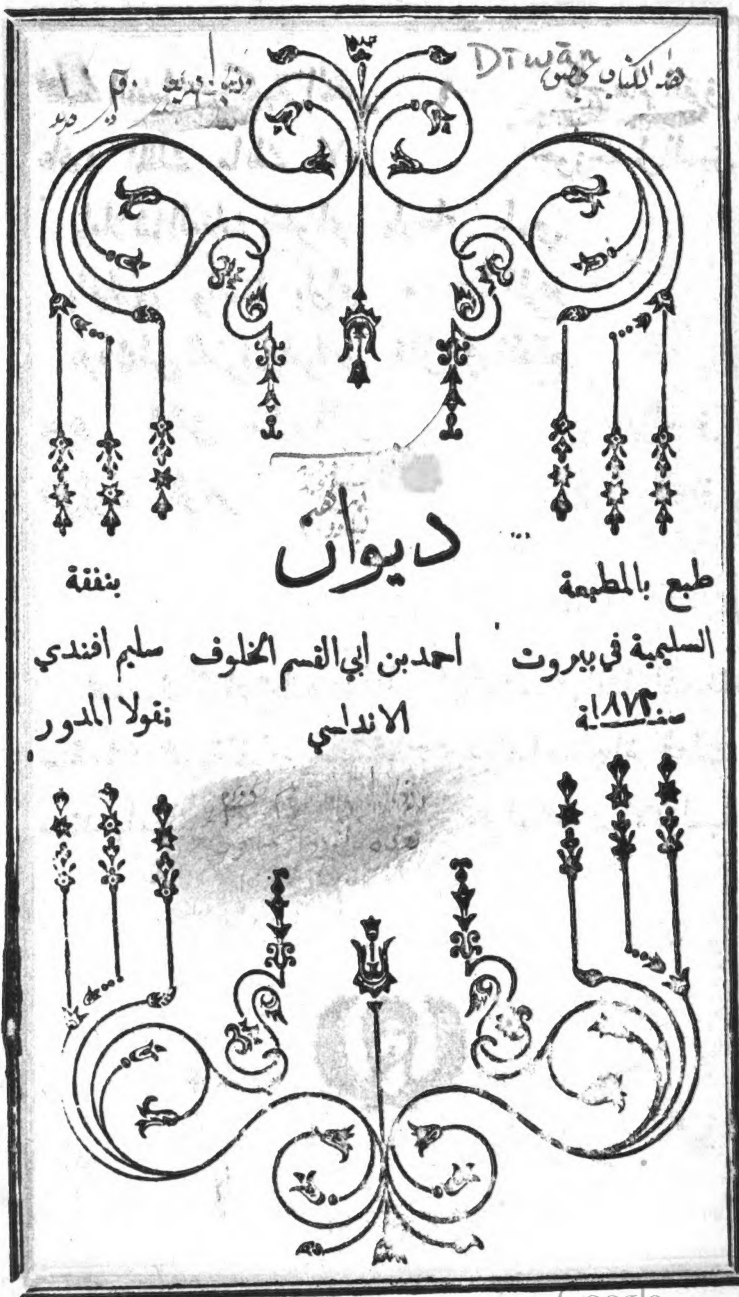 Dīwān
هذا الكتاب
ديوان
طبع بالمطبعة
السليمية في بيروت
سنة ١٨٧٣
احمد بن ابي القسم الخلوف
الاندلسي
بنفقة
سليم افندي
نقولا المدور